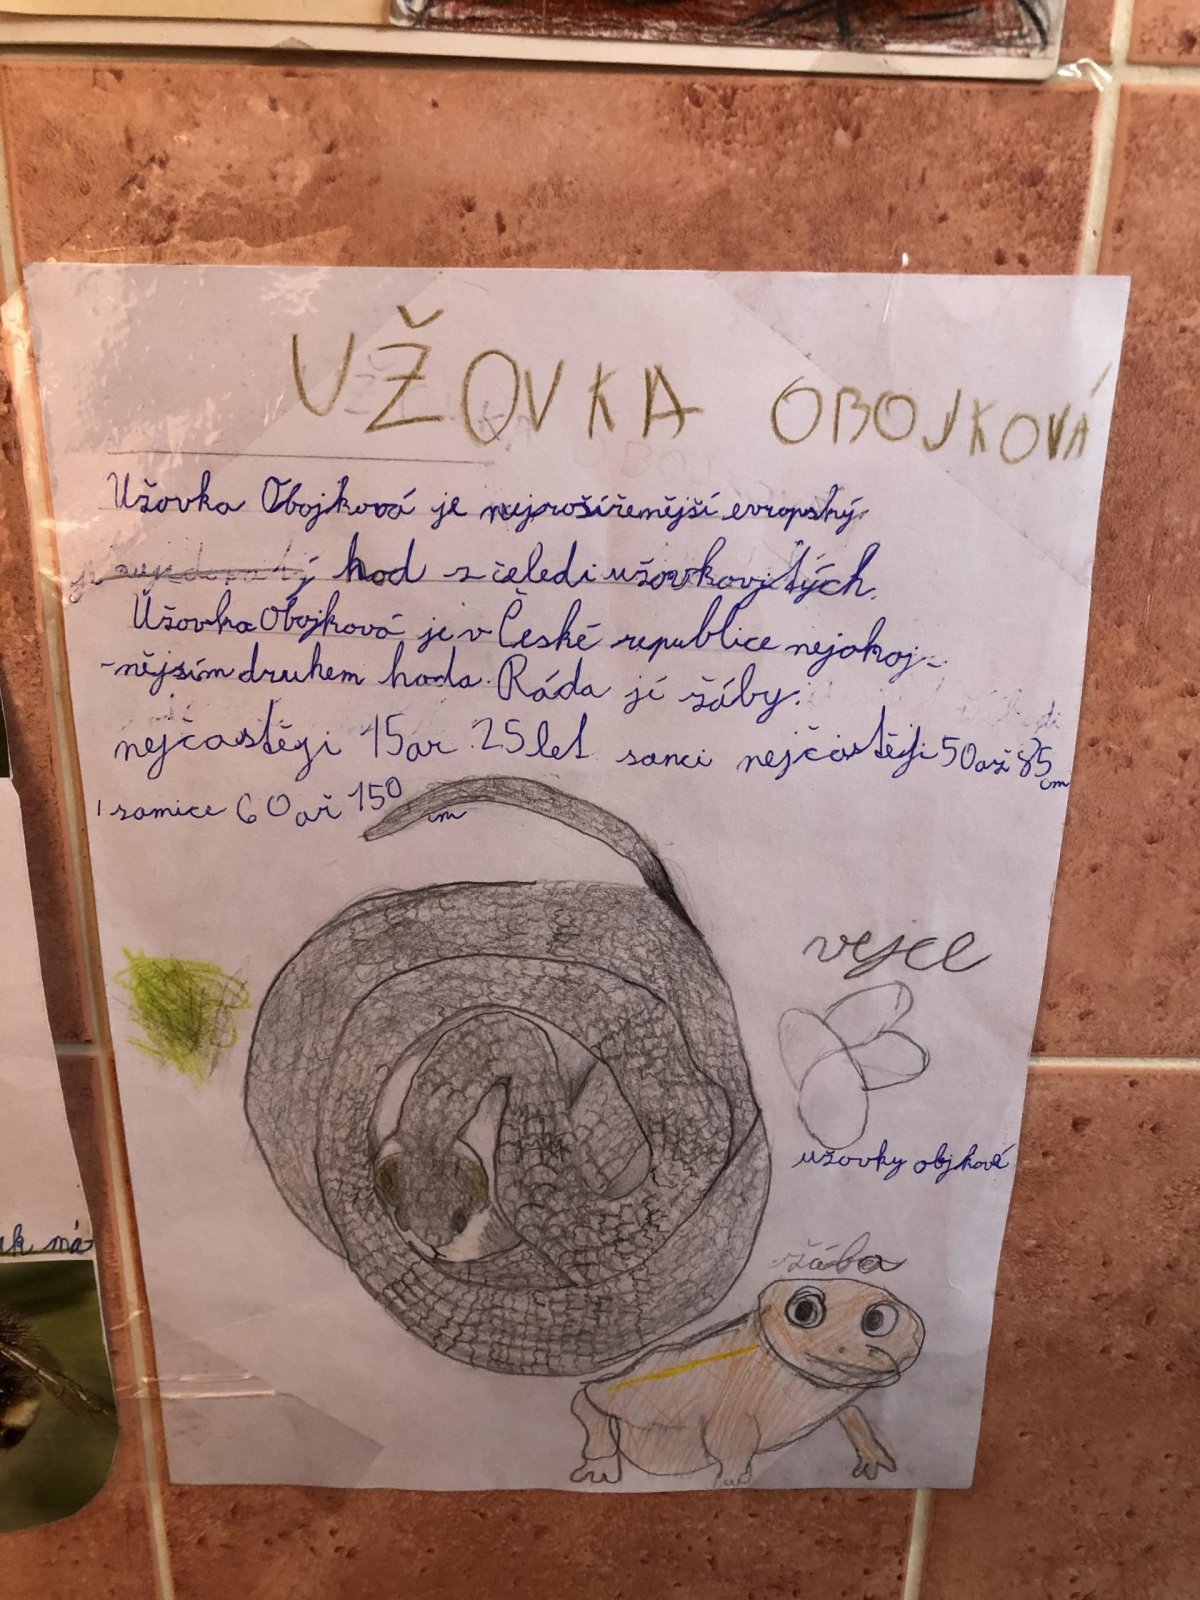 UŽOVKA OBOJKOVÁ
Užovka Obojková je nejrošířemější evropský
hod z čeledi užovkovitých.
Užovka Obojková je v České republice nejokoj-
-nějsím druhem hada. Ráda jí žáby.
nejčastěji 15 až 25 let samci nejčastěji 50 až 85 cm
samice 60 ař 150 cm
vejce
užovky objkové
žába
ak má